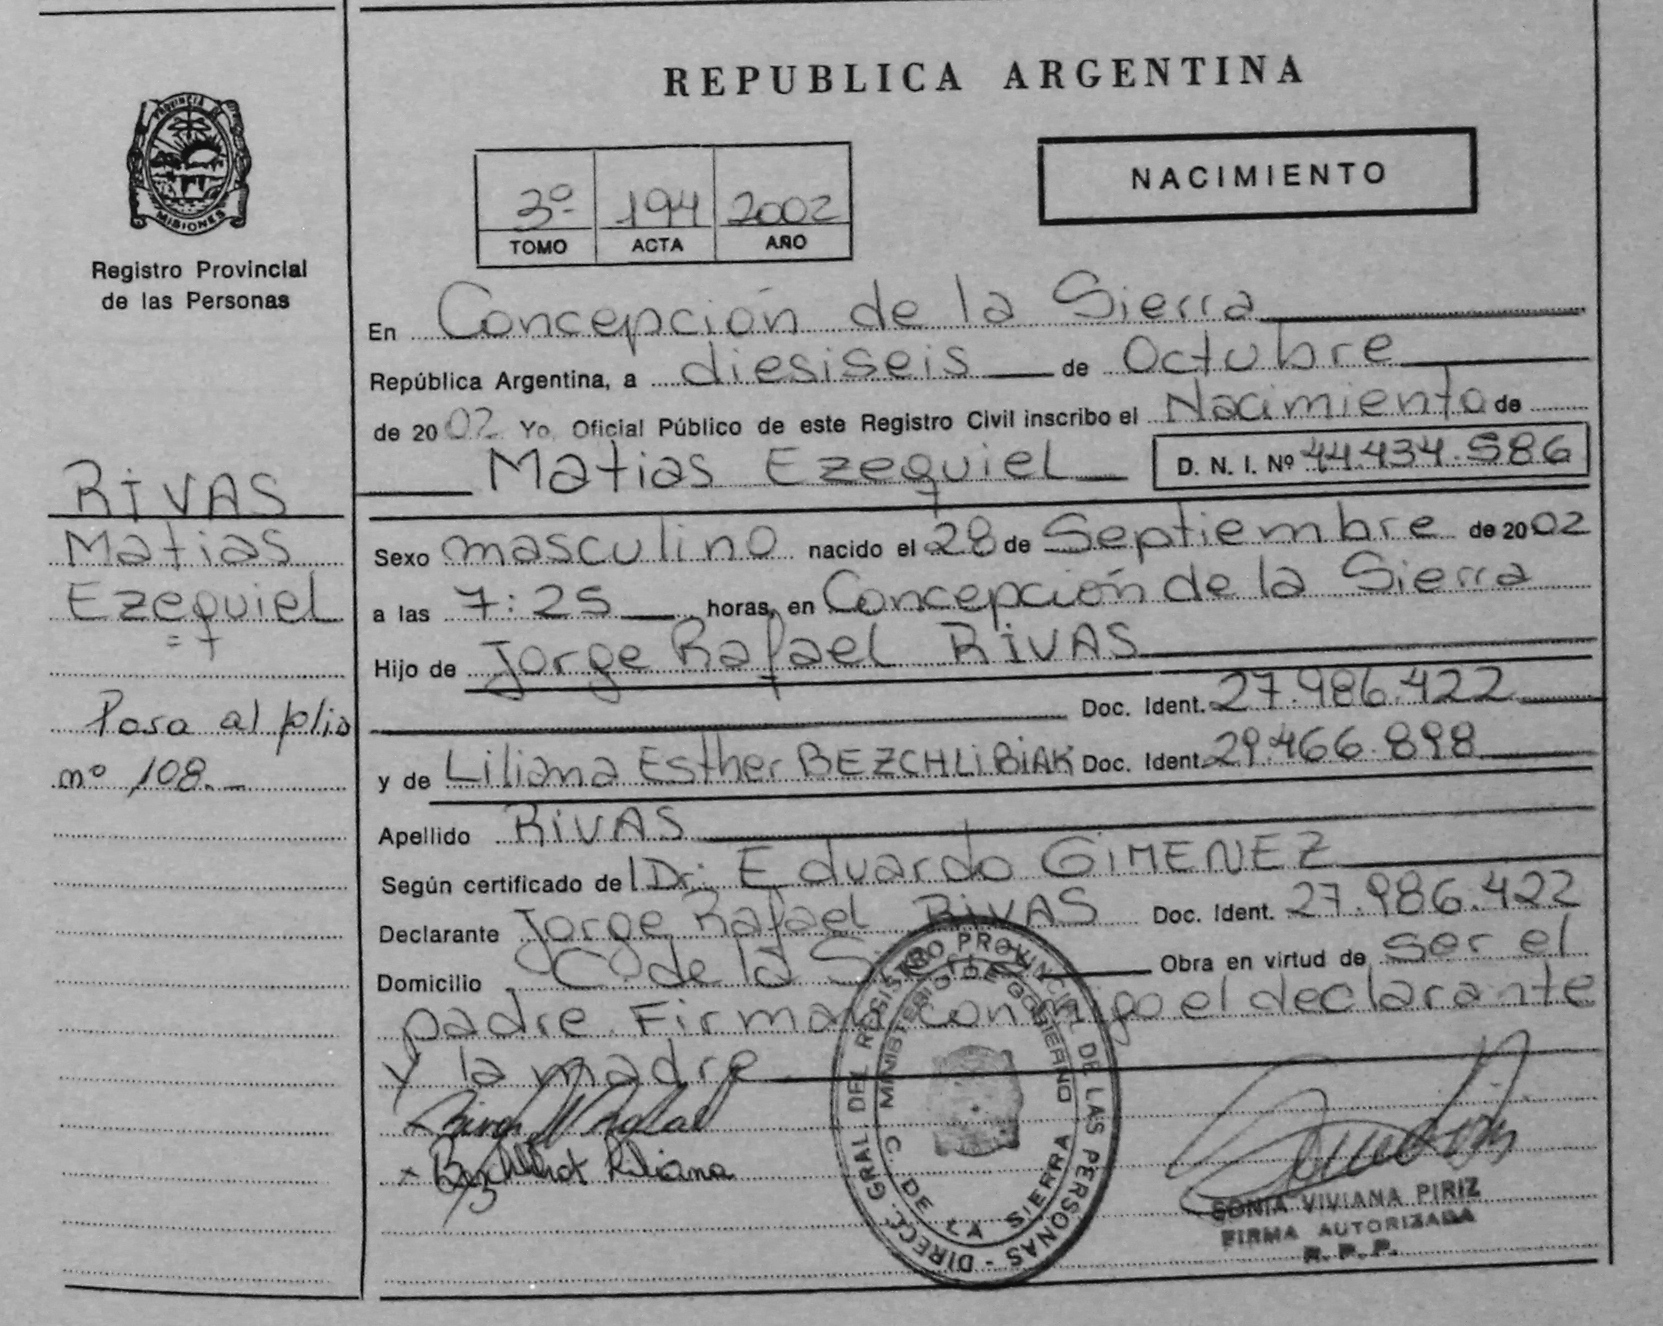 REPUBLICA ARGENTINA
PROVINCIA DE MISIONES
Registro Provincial
de las Personas
3º 194 2002
TOMO ACTA AÑO
NACIMIENTO
En Concepción de la Sierra
República Argentina, a diesiseis de Octubre
de 2002 Yo, Oficial Público de este Registro Civil inscribo el Nacimiento de
Matias Ezequiel D. N. I. Nº 44.434.586
Sexo masculino nacido el 28 de Septiembre de 2002
a las 7:25 horas, en Concepción de la Sierra
Hijo de Jorge Rafael RIVAS
Doc. Ident. 27.986.422
y de Liliana Esther BEZCHLIBIAK Doc. Ident. 29.466.898
Apellido RIVAS
Según certificado del Dr. Eduardo GIMENEZ
Declarante Jorge Rafael RIVAS Doc. Ident. 27.986.422
Domicilio C. de la S Obra en virtud de ser el
padre. Firman conmigo el declarante
y la madre
RIVAS
Matias
Ezequiel
Pasa al folio
nº 108.
DIREC. GRAL. DEL REGISTRO PROVINCIAL DE LAS PERSONAS
MINISTERIO DE GOBIERNO
C. DE LA SIERRA
Liliana
SONIA VIVIANA PIRIZ
FIRMA AUTORIZADA
R. P. P.